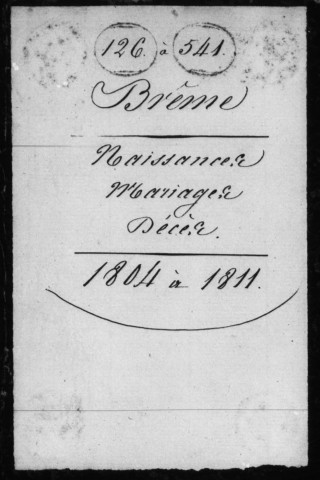 126. à 541.
Brême
Naissances
Mariages
Décès.
1804 à 1811.